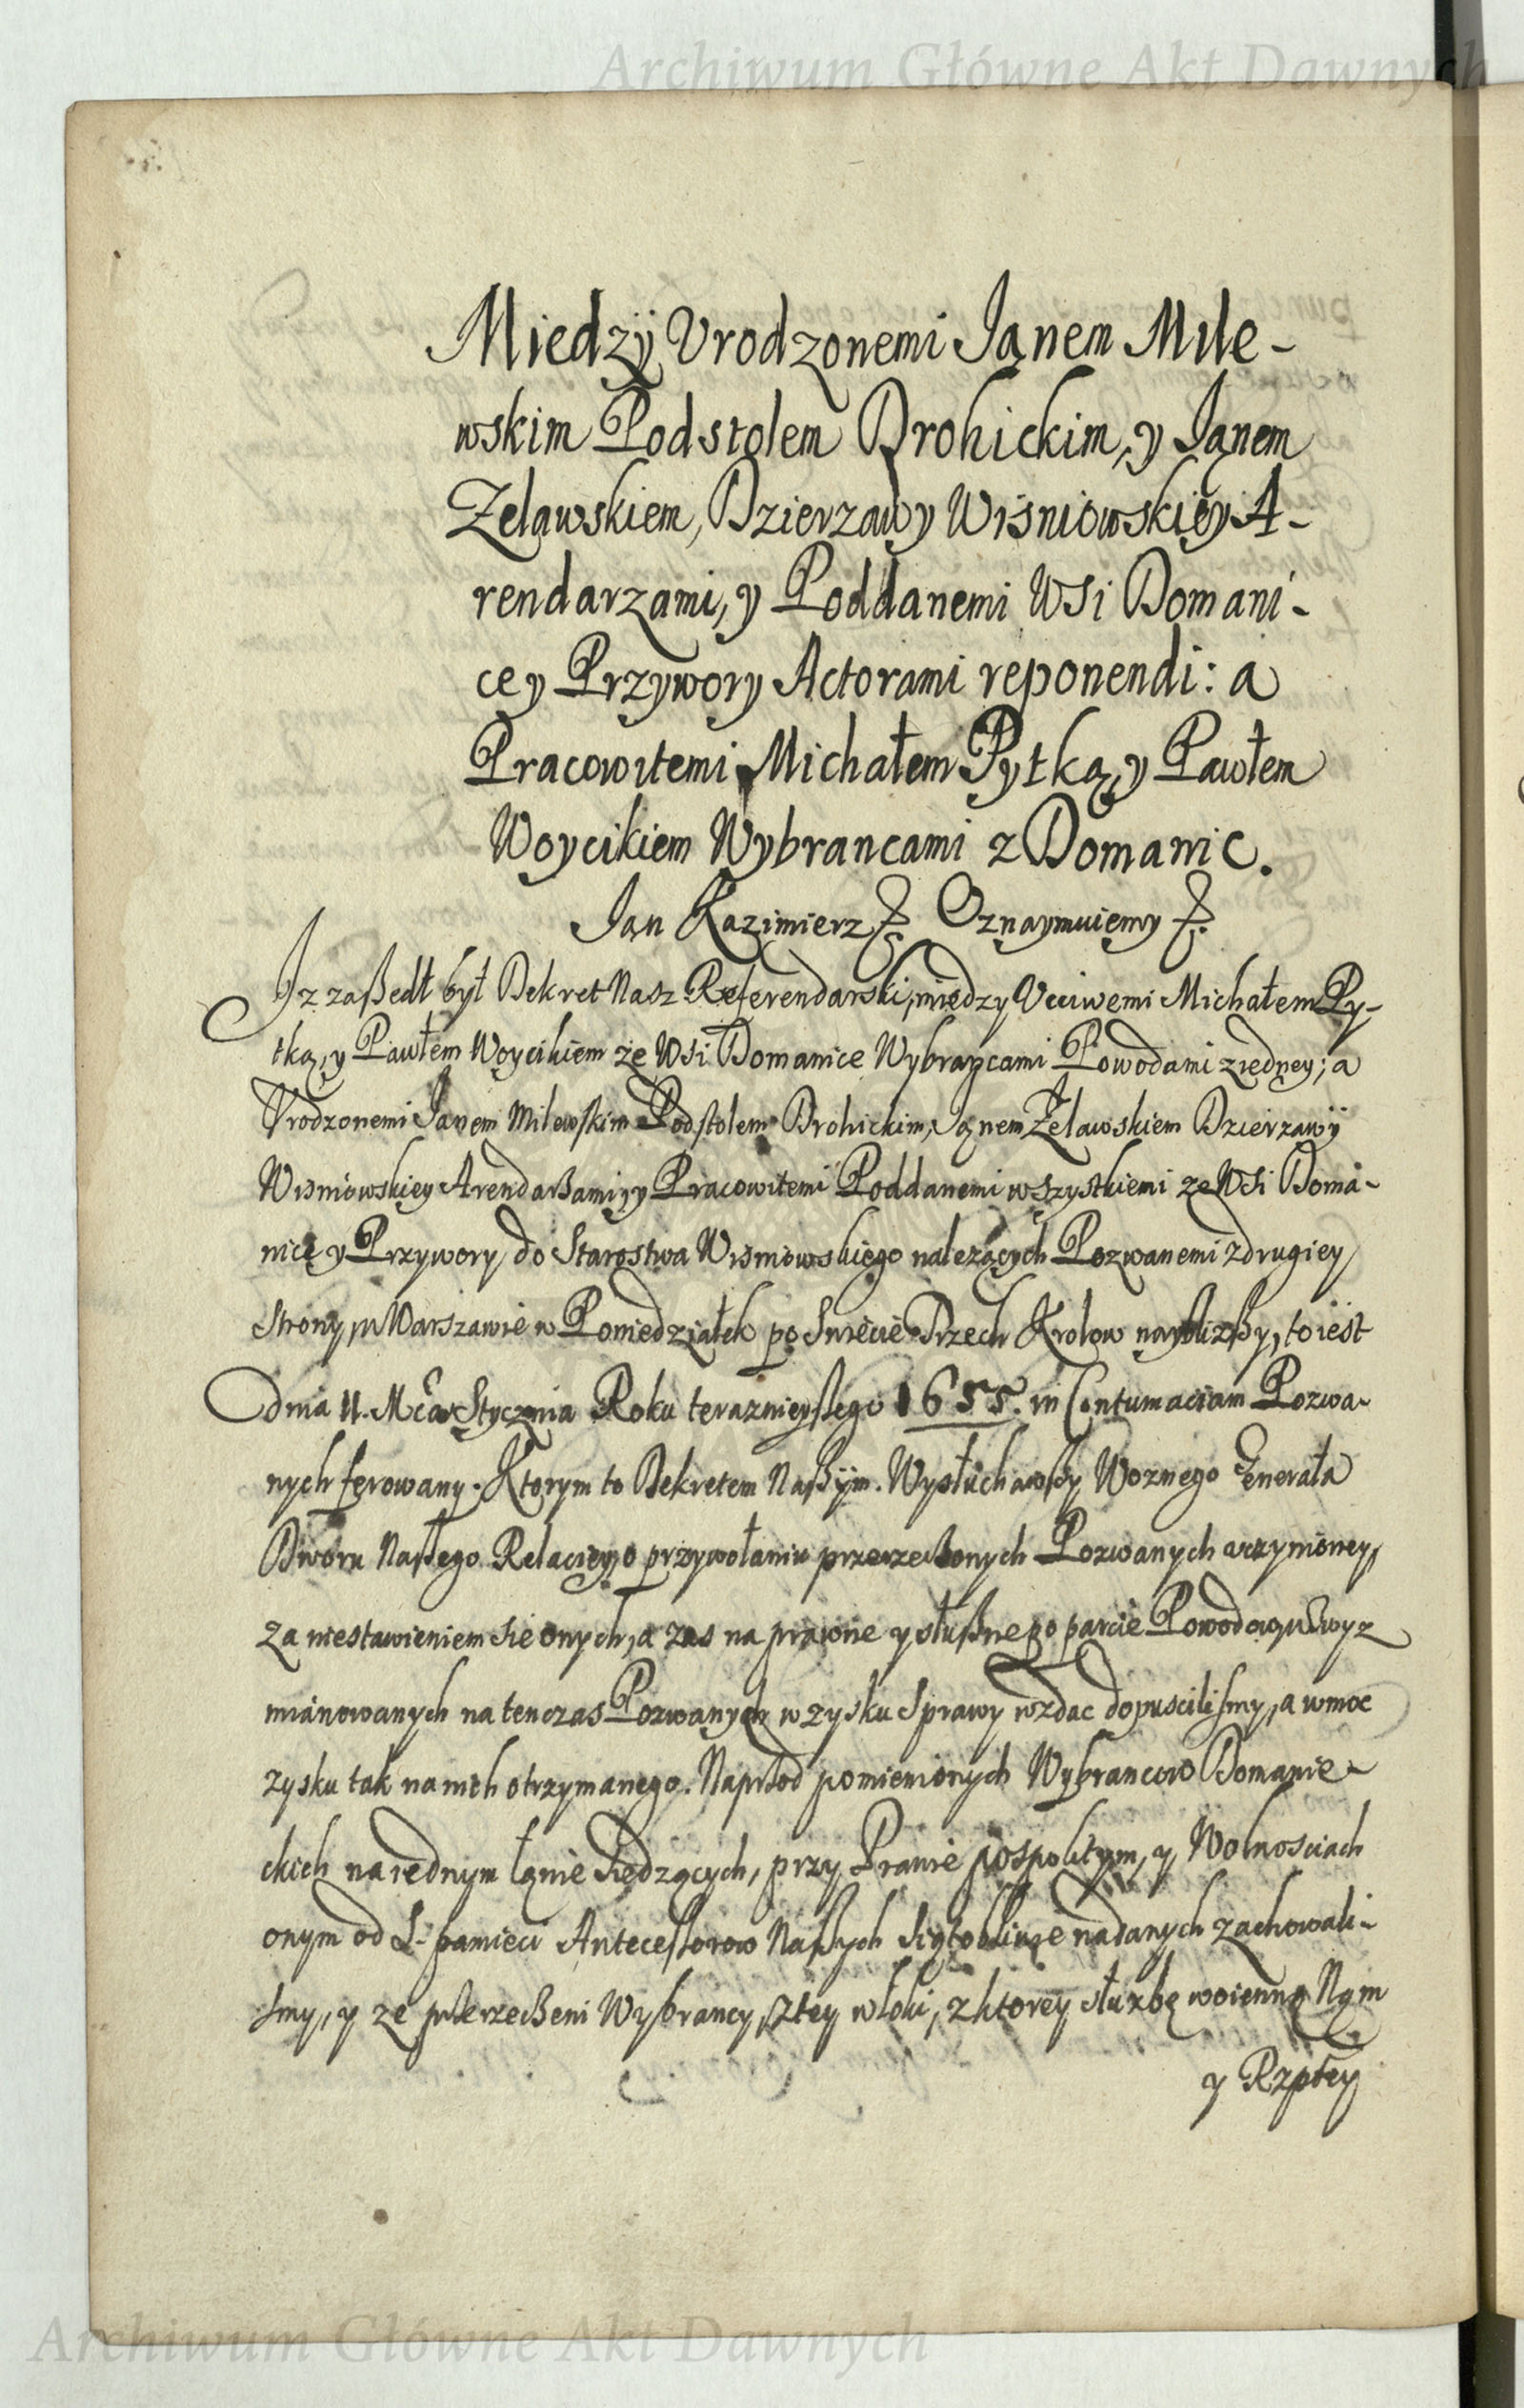 Archiwum Główne Akt Dawnych
Miedzÿ Vrodzonemi Ianem Mile-
wskim Podstolem Drohickim, y Ianem
Zelawskiem, Dzierzawy Wisniowskiey A-
rendarzami, y Poddanemi Wsi Domani-
ce y Przywory Actorami reponendi: a
Pracowitemi Michałem Pytką, y Pawłem
Woycikiem Wybrancami z Domanic.
Jan Kazimierz Oznaymuiemy
Jz zaßedł był Dekret Nasz Referendarski, między Vcciwemi Michałem Py-
tką, y Pawłem Woycikiem ze Wsi Domanice Wybrancami Powodami z iedney; a
Vrodzonemi Janem Milewskim Podstolem Drohickim, Janem Zelawskiem Dzierzawÿ
Wisniowskiey Arendaßami, y Pracowitemi Poddanemi wszystkiemi ze Wsi Doma-
nice y Przywory do Starostwa Wisniowskiego nalezących Pozwanemi z drugiey
Strony, w Warszawie w Poniedziałek po Swięcie Trzech Krolow nayblizßy, to iest
dnia 11. Mca Stycznia Roku teraznieyßego 1655. in Contumaciam Pozwa-
nych ferowany. Ktorym to Dekretem Naßÿm. Wysłuchawßy Woznego Generała
Dworu Naßego Relaciey, o przywołaniu przerzeczonych Pozwanych uczynioney,
za niestawieniem sie onych, a zas na prawne y słußne poparcie Powodow Zwyz
mianowanych na tenczas Pozwanych w zysku Sprawy wzdac dopuscilismy, a w moc
zysku tak na nich otrzymanego. Naprzod pomienionych Wybrancow Domanie-
ckich na iednym Łanie siedzących, przy Prawie pospolitym, y Wolnosciach
onym od S. pamieci Antecessorow Naßych nadanych zachowali-
smy, y ze przerzeczeni Wybrancy, z tey włoki, z ktorey słuzbę woienną Nam
y Rzptey
Archiwum Główne Akt Dawnych